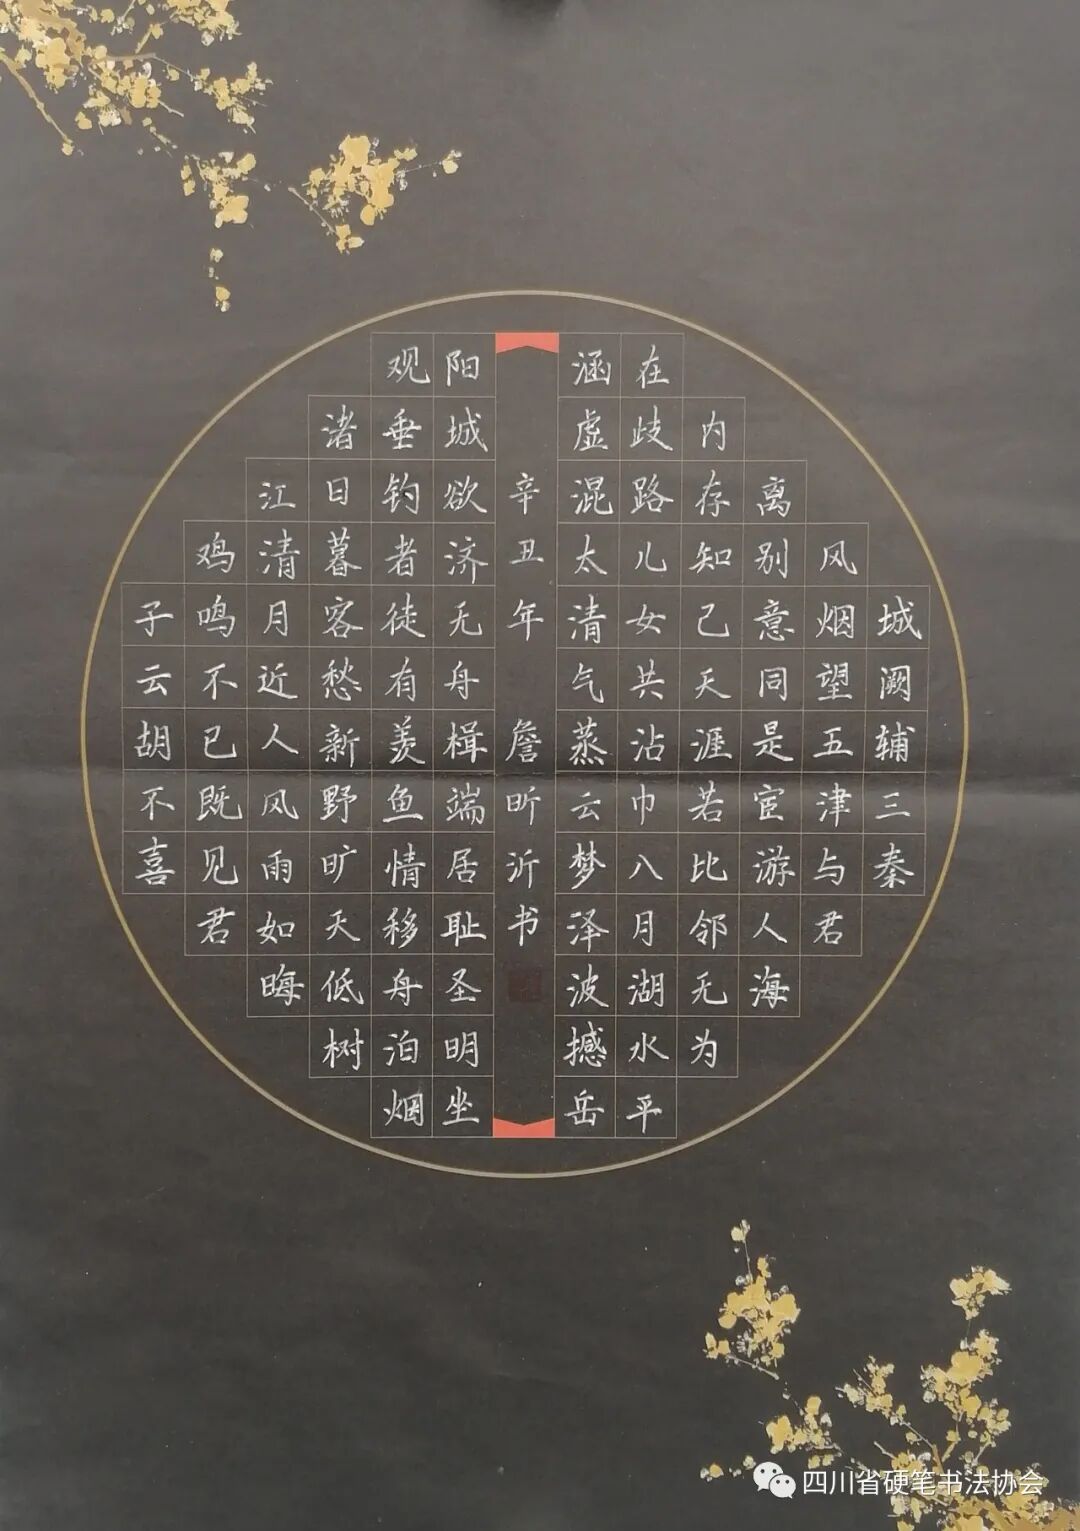 城阙辅三秦
风烟望五津与君
离别意同是宦游人海
内存知己天涯若比邻无为
在歧路儿女共沾巾八月湖水平
涵虚混太清气蒸云梦泽波撼岳
辛丑年詹昕沂书
阳城欲济无舟楫端居耻圣明坐
观垂钓者徒有羡鱼情移舟泊烟
诸日暮客愁新野旷天低树
江清月近人风雨如晦
鸡鸣不已既见君
子云胡不喜
四川省硬笔书法协会